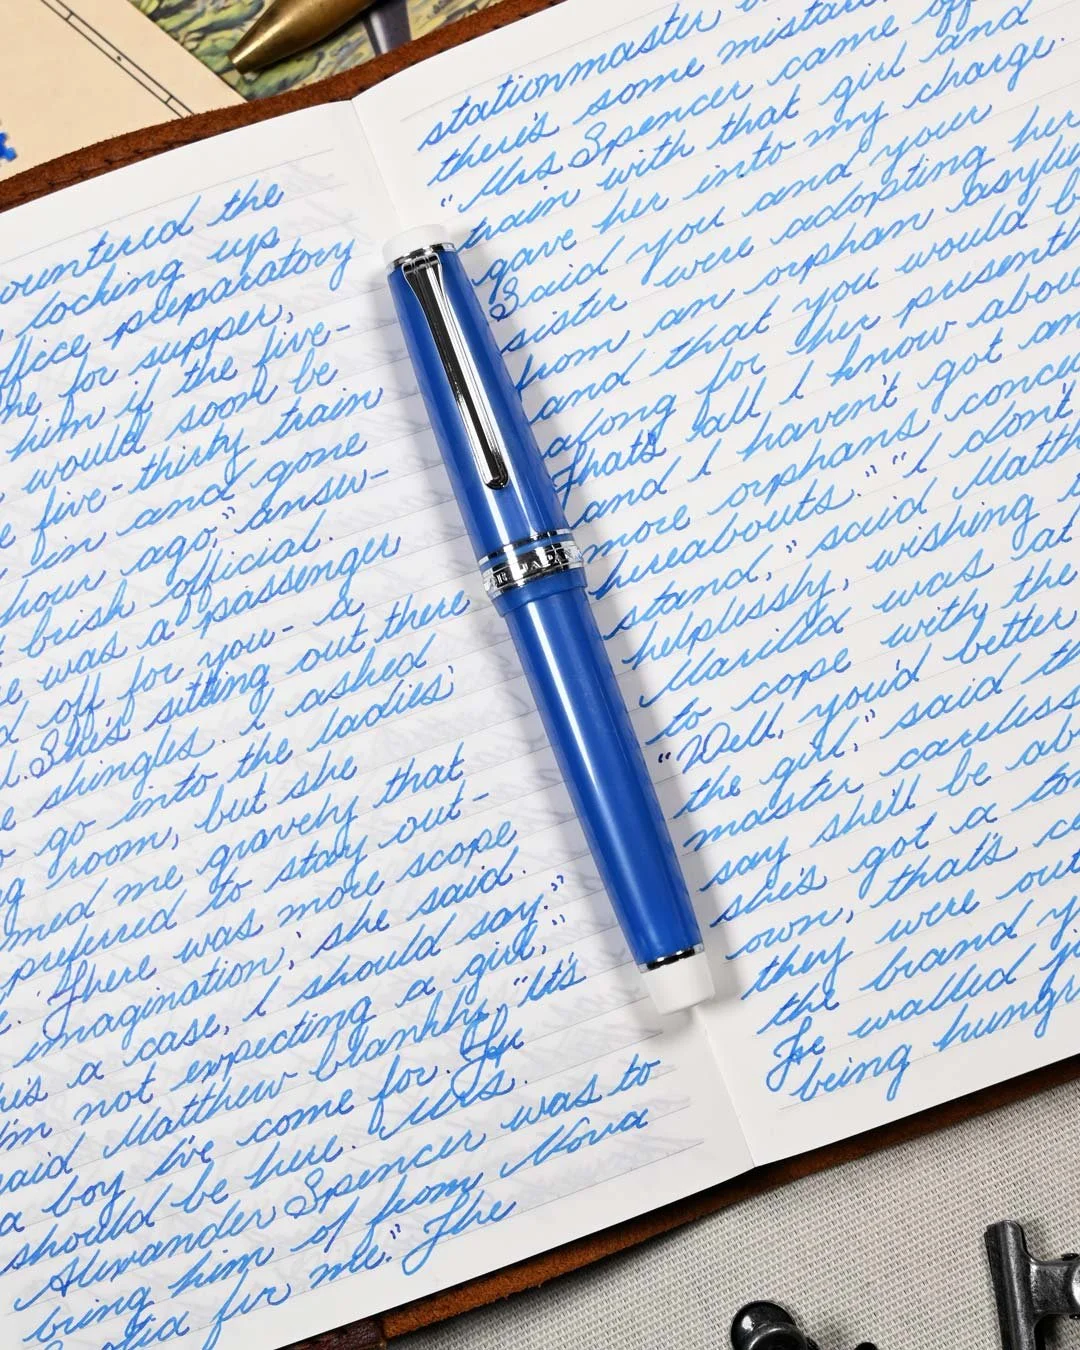 ountered the
locking up
ffice preparatory
me for supper,
him if the five-
would soon be
e five-thirty train
in and gone
hour ago," answ-
brisk official.
e was a passenger
d off for you- a
. She's sitting out there
e shingles. I asked
go into the ladies'
g room, but she
med me gravely that
preferred to stay out-
e. There was more scope
imagination,' she said.
his a case, I should say."
I'm not expecting a girl,"
said Matthew blankly. "It's
a boy I've come for. He
should be here. Mrs.
Alexander Spencer was to
bring him of from Nova
Scotia for me." The
stationmaster
there's some mistake
"Mrs Spencer came off
train with that girl and
gave her into my charge.
Said you and your
sister were adopting her
from an orphan asylu
and that you would b
along for her presentl
That's all I know abou
and I haven't got an
more orphans concea
hereabouts." "I don't
stand," said Matth
helplessly, wishing
Marilla was at
to cope with the
"Well, you'd better
the girl," said th
master careless
say she'll be ab
she's got a ton
own, that's ce
they were out
the brand y
He walked ji
being hungr
JAPAN